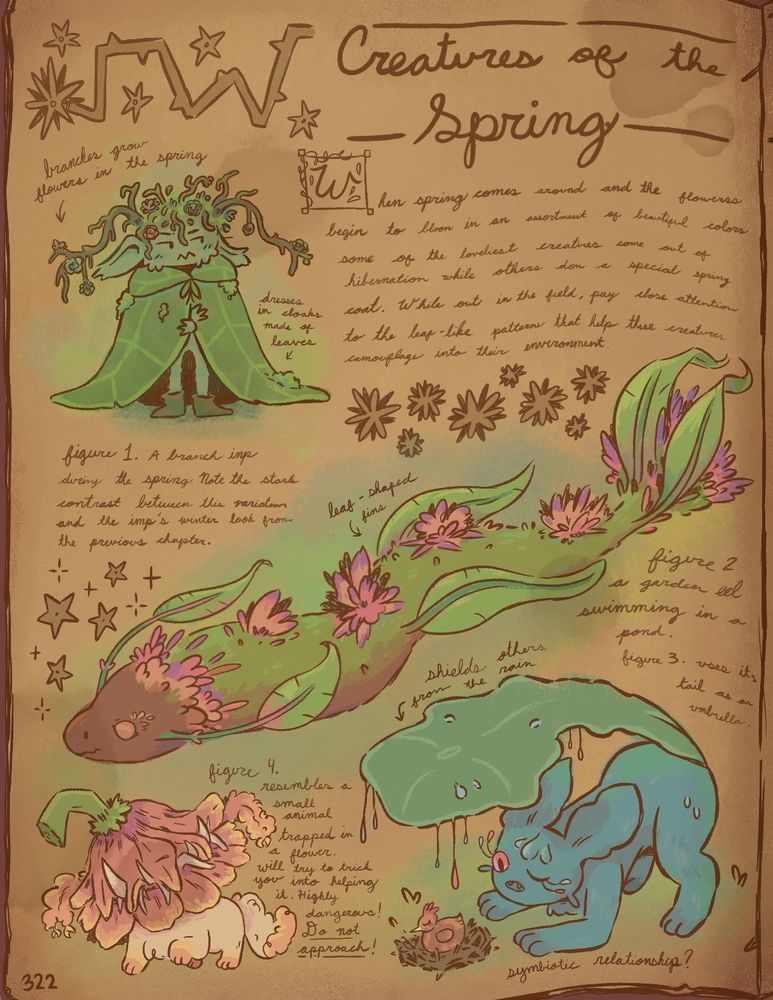 Creatures of the
Spring
branches grow
flowers in the spring
When spring comes around and the flowers
begin to bloom in an assortment of beautiful colors
some of the loveliest creatures come out of
hibernation while others don a special spring
coat. While out in the field, pay close attention
to the leaf-like patterns that help these creatures
camouflage into their environment
dresses
in cloaks
made of
leaves
figure 1. A branch imp
during the spring. Note the stark
contrast between this variation
and the imp's winter look from
the previous chapter.
leaf-shaped
fins
figure 2
a garden eel
swimming in a
pond.
figure 3. uses its
tail as an
umbrella.
shields others
from the rain
figure 4.
resembles a
small
animal
trapped in
a flower.
will try to trick
you into helping
it. Highly
dangerous!
Do not
approach!
symbiotic relationship?
322